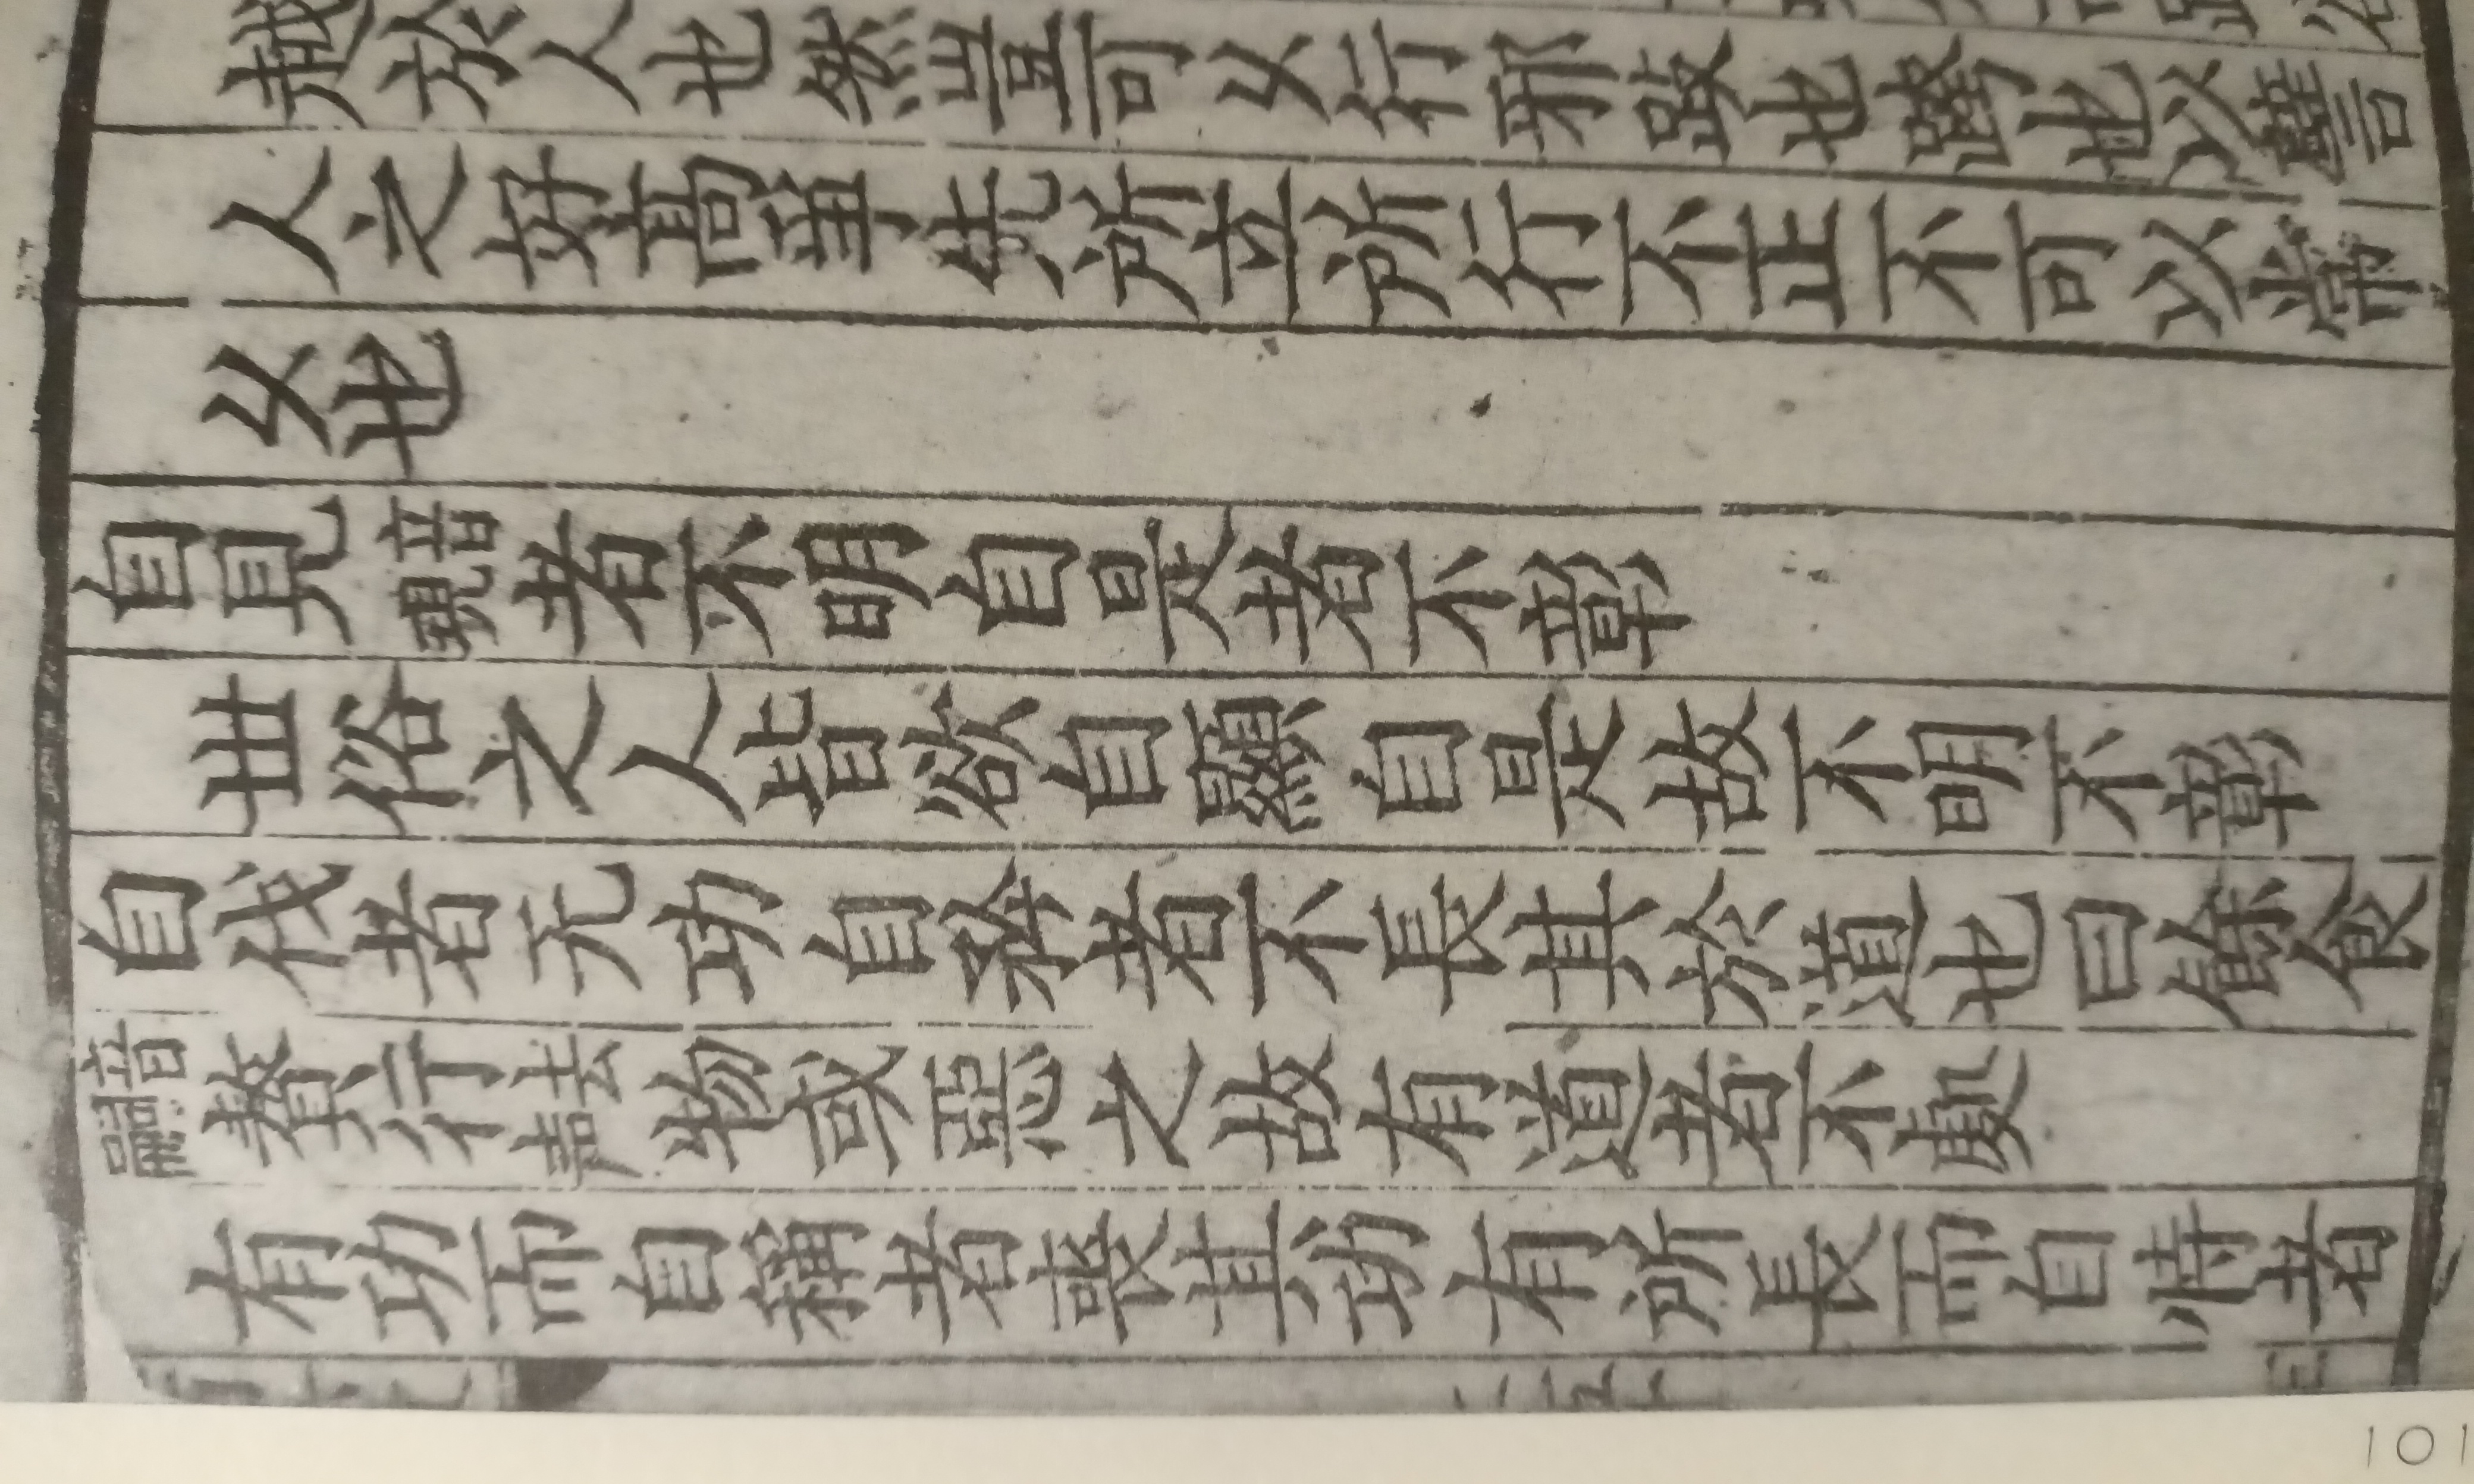 越於人也然豈可久行邪跂也跨也以譬
人之好高爭先所立所行不正不可以常
久也
自見音現者不明自是者不彰
世俗之人皆欲自顯自是故不明不彰
自伐者无功自矜者不長其於道也曰餘食
音嗣贅行去聲物或惡之故有道者不處
有功而自稱者喪其功有所長而自恃者
101